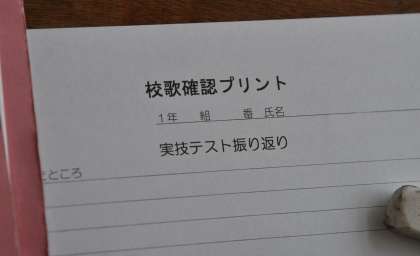 校歌確認プリント
1年 組 番 氏名
実技テスト振り返り
ところ